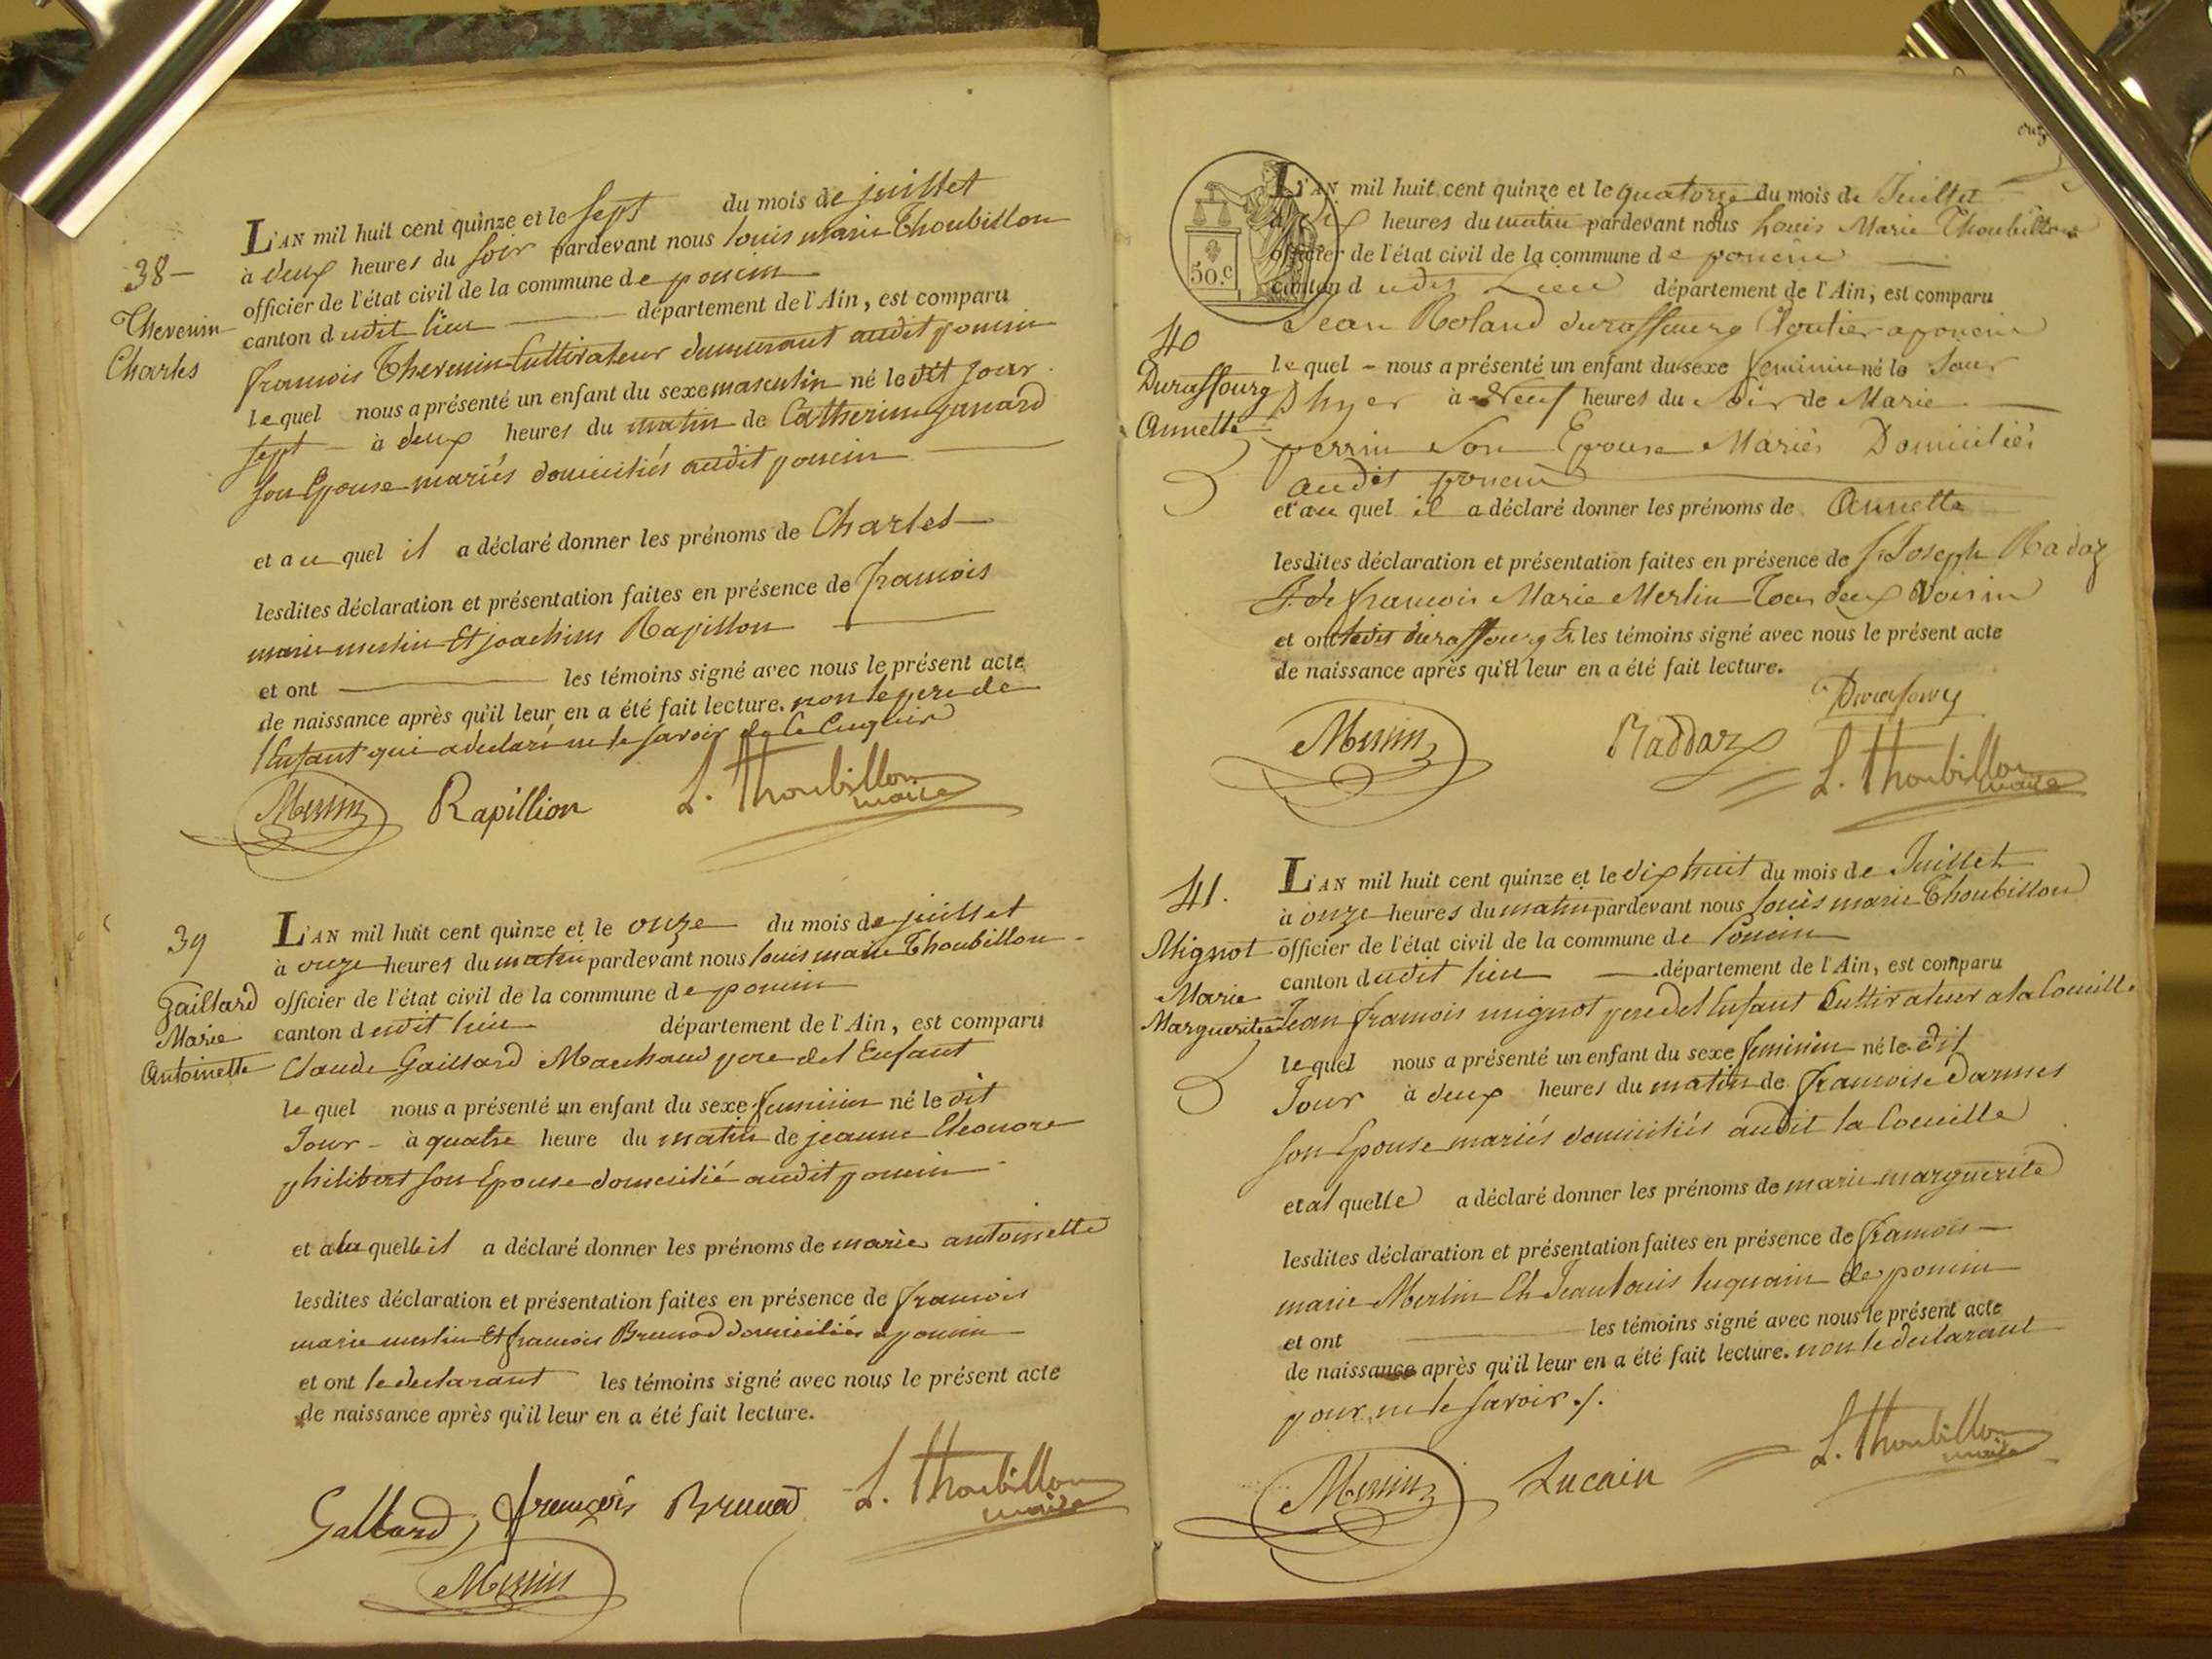 38 —
Thevenin
Charles
L'AN mil huit cent quinze et le sept du mois de juillet
à deux heures du soir pardevant nous louis marie Thoubillon
officier de l'état civil de la commune de poncin
canton dudit lieu département de l'Ain, est comparu
francois Thevenin Cultivateur demeurant audit poncin
le quel nous a présenté un enfant du sexe masculin né le dit jour
sept à deux heures du matin de Catherine
son Epouse mariés domiciliés audit poncin
et au quel il a déclaré donner les prénoms de Charles
lesdites déclaration et présentation faites en présence de francois
marie merlin Et joachim Rapillon
et ont les témoins signé avec nous le présent acte
de naissance après qu'il leur en a été fait lecture. non le pere de
lEnfant qui a declaré ne le savoir de ce Enquis
Merlin Rapillion L. Thoubillon
maire
39
Gaillard
Marie
Antoinette
L'AN mil huit cent quinze et le onze du mois de juillet
à onze heures du matin pardevant nous louis marie Thoubillon
officier de l'état civil de la commune de poncin
canton dudit lieu département de l'Ain, est comparu
Claude Gaillard Marchand pere del Enfant
le quel nous a présenté un enfant du sexe feminin né le dit
Jour à quatre heure du matin de jeanne Eleonore
philibert son Epouse domicilié audit poncin
et a la quelle il a déclaré donner les prénoms de marie antoinette
lesdites déclaration et présentation faites en présence de francois
marie merlin Et francois Brunod domiciliés a poncin
et ont le declarant les témoins signé avec nous le présent acte
de naissance après qu'il leur en a été fait lecture.
Gallard françois Brunod L. Thoubillon
maire
Merlin
50.c
40
Duraffourg
Annette
L'AN mil huit cent quinze et le quatorze du mois de Juillet
à dix heures du matin pardevant nous Louis Marie Thoubillon
officier de l'état civil de la commune de poncin
canton dudit Lieu département de l'Ain, est comparu
Jean Roland duraffourg Cloutier a poncin
le quel nous a présenté un enfant du sexe feminin né le Jour
Dhyer à Neuf heures du Soir de Marie
perrin Son Epouse Mariés Domiciliés
audit poncin
et au quel il a déclaré donner les prénoms de Annette
lesdites déclaration et présentation faites en présence de Sr Joseph Radaz
& de francois Marie Merlin Tous deux Voisin
et ont ledit duraffourg & les témoins signé avec nous le présent acte
de naissance après qu'il leur en a été fait lecture.
Durafourg
Merlin Raddaz L. Thoubillon
maire
41.
Mignot
Marie
Marguerite
L'AN mil huit cent quinze et le dix huit du mois de Juillet
à onze heures du matin pardevant nous louis marie Thoubillon
officier de l'état civil de la commune de Poncin
canton dudit lieu département de l'Ain, est comparu
Jean francois mignot pere del Enfant Cultivateur a la Coueille
le quel nous a présenté un enfant du sexe feminin né le dit
Jour à deux heures du matin de francoise
son Epouse mariés domiciliés audit la Coueille
et al quelle a déclaré donner les prénoms de marie marguerite
lesdites déclaration et présentation faites en présence de francois
marie Merlin Et Jean louis luquain de poncin
et ont les témoins signé avec nous le présent acte
de naissance après qu'il leur en a été fait lecture. non le declarant
pour ne le savoir ./.
Merlin Lucain L. Thoubillon
maire